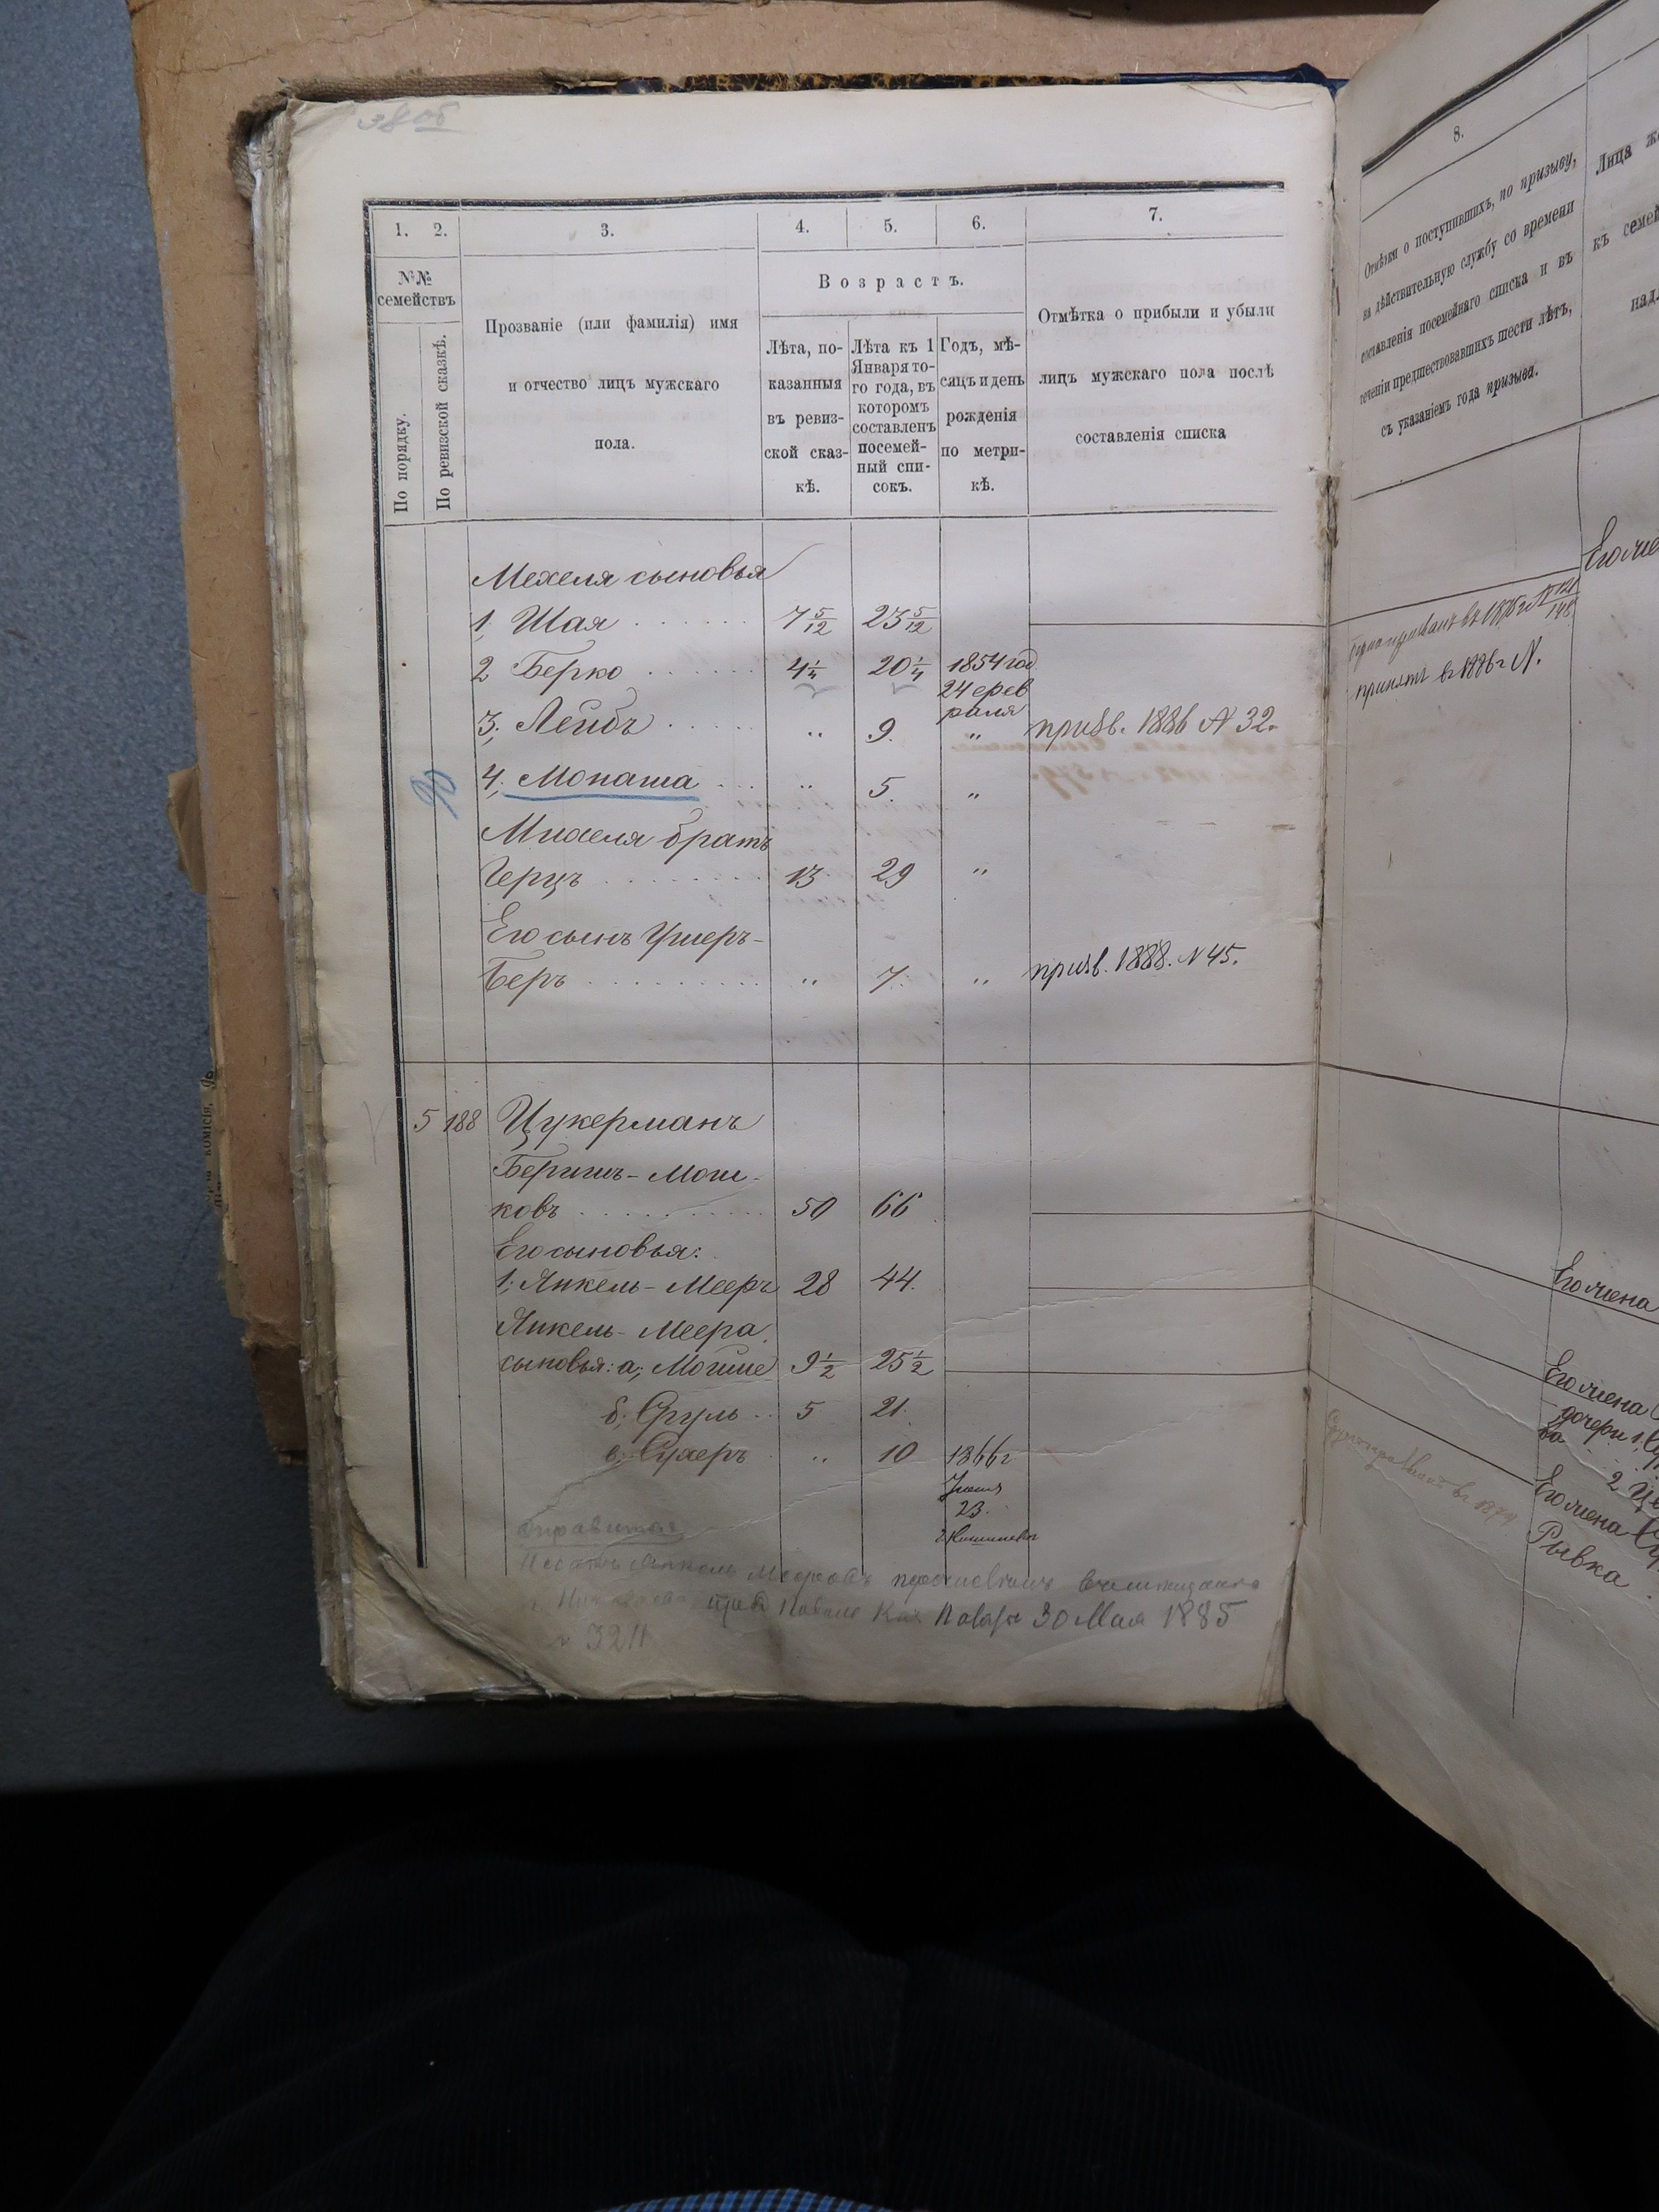 38 об
1. 2. 3. 4. 5. 6. 7.
№№ семействъ
По порядку.
По ревизской сказкѣ.
Прозваніе (или фамилія) имя
и отчество лицъ мужскаго
пола.
Возрастъ.
Лѣта, по-
казанныя
въ ревиз-
ской сказ-
кѣ.
Лѣта къ 1
Января то-
го года, въ
которомъ
составленъ
посемей-
ный спи-
сокъ.
Годъ, мѣ-
сяцъ и день
рожденія
по метри-
кѣ.
Отмѣтка о прибыли и убыли
лицъ мужскаго пола послѣ
составленія списка
Мехеля сыновья
1, Шая 7 5/12 23 5/12
2 Берко 4 1/4 20 1/4 1854 год
24 фев
раля
3, Лейбъ „ 9. „ призв. 1886 № 32.
4, Монаша „ 5. „
Михеля братъ
Герцъ 13 29 „
Его сынъ Ушеръ-
Беръ „ 7. „ призв. 1888. № 45.
5 188 Цукерманъ
Беришъ-Мош-
ковъ 50 66
Его сыновья:
1, Янкель-Мееръ 28 44.
Янкель-Меера
сыновья: а, Мошие 9 1/2 25 1/2
б, Сруль 5 21.
в, Сухеръ „ 10 1866 г
23.
30 Мая 1885
№ 3211
8.
Отмѣтки о поступившихъ, по призыву,
на дѣйствительную службу со времени
составленія посемейнаго списка и въ
теченіи предшествовавшихъ шести лѣтъ,
съ указаніемъ года призыва.
Лица же
къ семей
надл
принятъ въ 1886 г №.
Его жена
Его жена
дочери 1,
2
Его жена
Рывка